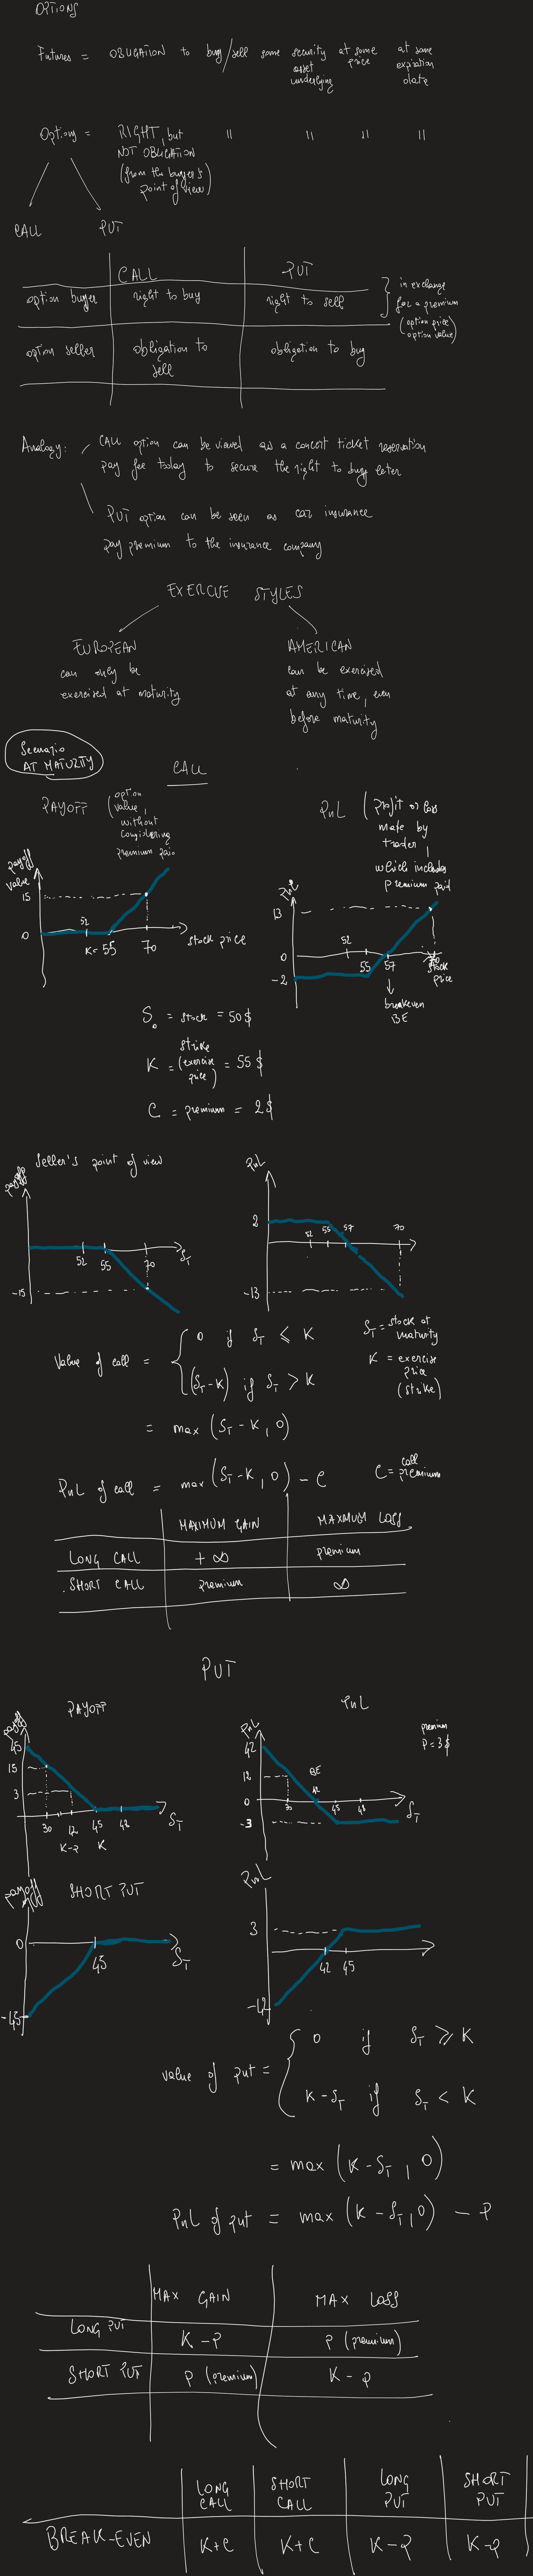 OPTIONS
Futures = OBLIGATION to buy/sell some security at some at some
asset price expiration
underlying date
Options = RIGHT, but " " " "
NOT OBLIGATION
(from the buyer's
point of view)
CALL PUT
CALL PUT
option buyer right to buy right to sell
in exchange
for a premium
(option price)
option value)
option seller obligation to obligation to buy
sell
Analogy: CALL option can be viewed as a concert ticket reservation
pay fee today to secure the right to buy later
PUT option can be seen as car insurance
pay premium to the insurance company
EXERCISE STYLES
EUROPEAN AMERICAN
can only be can be exercised
exercised at maturity at any time, even
before maturity
Scenario
AT MATURITY
CALL
PAYOFF (option
value,
without
considering
premium paid
PnL (profit or loss
made by
trader,
which includes
premium paid
payoff
value
15
0
52
K=55
70
stock price
PnL
13
0
-2
52
55
57
70
stock
price
breakeven
BE
S0 = stock = 50$
K = strike (exercise price) = 55$
C = premium = 2$
Seller's point of view
payoff
52 55 70 ST
-15
PnL
2
52 55 57 70
-13
Value of call = { 0 if ST ≤ K
(ST-K) if ST > K
ST = stock at
maturity
K = exercise
price
(strike)
= max (ST - K, 0)
PnL of call = max (ST-K, 0) - C
C = call
premium
MAXIMUM GAIN MAXIMUM LOSS
LONG CALL + ∞ premium
SHORT CALL premium ∞
PUT
PAYOFF PnL
premium
P=3$
payoff
45
15
3
30 42 45 48 ST
K-P K
PnL
42
12
0
-3
BE
30 42 45 48 ST
payoff SHORT PUT
0
45 ST
-45
PnL
3
42 45
-42
value of put = { 0 if ST ≥ K
K-ST if ST < K
= max (K-ST, 0)
PnL of put = max (K-ST, 0) - P
MAX GAIN MAX LOSS
LONG PUT K-P P (premium)
SHORT PUT P (premium) K-P
LONG CALL SHORT CALL LONG PUT SHORT PUT
BREAK-EVEN K+C K+C K-P K-P